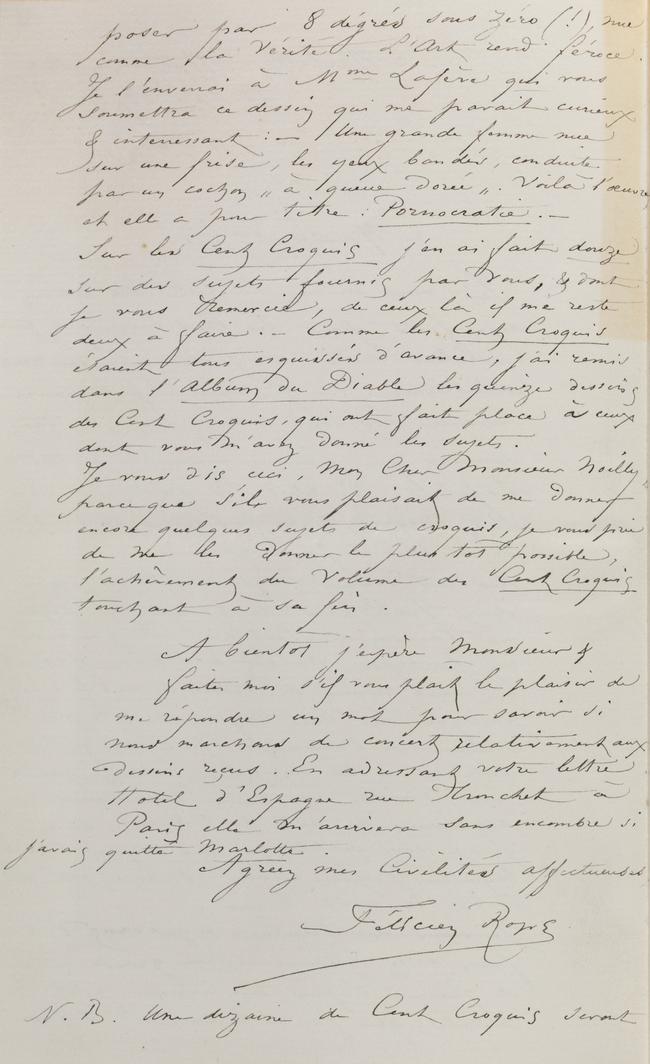 poser par 8 dégrés sous zéro (!), nue
comme la Vérité. L'Art rend féroce.
Je l'enverrai à Mme Lafère qui vous
soumettra ce dessin qui me parait curieux
& interressant : — Une grande femme nue
sur une frise, les yeux bandés, conduite
par un cochon „ à queue dorée „. Voilà l'œuvre
et elle a pour titre : Pornocratie. —
Sur les Cent Croquis j'en ai fait douze
sur des sujets fournis par vous, & dont
je vous remercie, de ceux là il me reste
deux à faire. — Comme les Cent Croquis
étaient tous esquissés d'avance, j'ai remis
dans l'Album du Diable les quinze dessins
des Cent Croquis, qui ont fait place à ceux
dont vous m'avez donné les sujets.
Je vous dis ceci, Mon Cher Monsieur Noilly,
parceque s'il vous plaisait de me donner
encore quelques sujets de croquis, je vous prie
de me les donner le plus tôt possible,
l'achèvement du Volume des Cent Croquis
touchant à sa fin.
A bientôt j'espère Monsieur &
faites moi s'il vous plait le plaisir de
me répondre un mot pour savoir si
nous marchons de concert relativement aux
dessins reçus. En adressant votre lettre
Hotel d'Espagne rue Tronchet à
Paris elle m'arrivera sans encombre si
j'avais quitté Marlotte.
Agréez mes Civilités affectueuses
Félicien Rops
N. B. Une dizaine de Cent Croquis seront